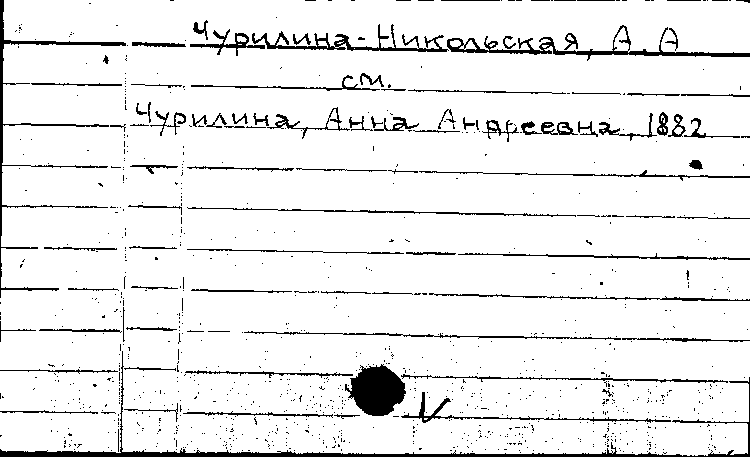 Чурилина-Никольская, А. А
см.
Чурилина, Анна Андреевна, 1882